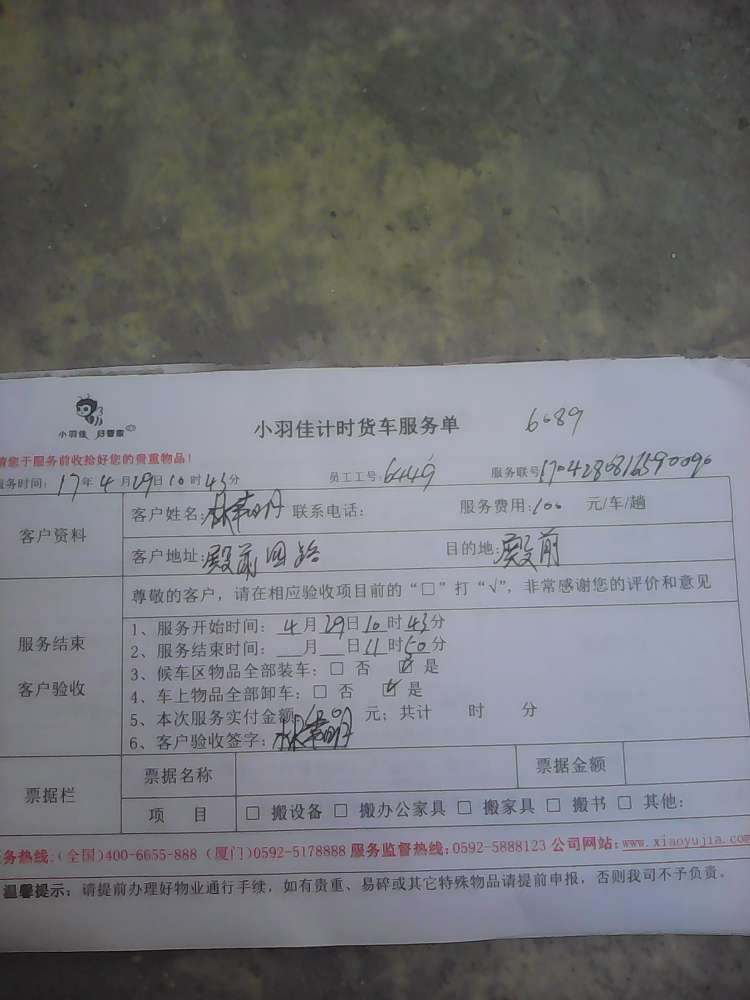 小羽佳 好管家
小羽佳计时货车服务单 6689
请您于服务前收拾好您的贵重物品!
服务时间: 17年4月29日10时43分 员工工号: 6449 服务联号
客户资料
客户姓名: 联系电话: 服务费用:100 元/车/趟
客户地址:殿前四路 目的地:殿前
服务结束
客户验收
尊敬的客户，请在相应验收项目前的“□”打“√”，非常感谢您的评价和意见
1、服务开始时间: 4月29日10时43分
2、服务结束时间: __月__日11时50分
3、候车区物品全部装车: □ 否 ☑ 是
4、车上物品全部卸车: □ 否 ☑ 是
5、本次服务实付金额 元; 共计 时 分
6、客户验收签字:
票据栏
票据名称 票据金额
项 目 □ 搬设备 □ 搬办公家具 □ 搬家具 □ 搬书 □ 其他:
服务热线:(全国)400-6655-888 (厦门)0592-5178888 服务监督热线:0592-5888123 公司网站:www.xiaoyujia.com
温馨提示: 请提前办理好物业通行手续，如有贵重、易碎或其它特殊物品请提前申报，否则我司不予负责。